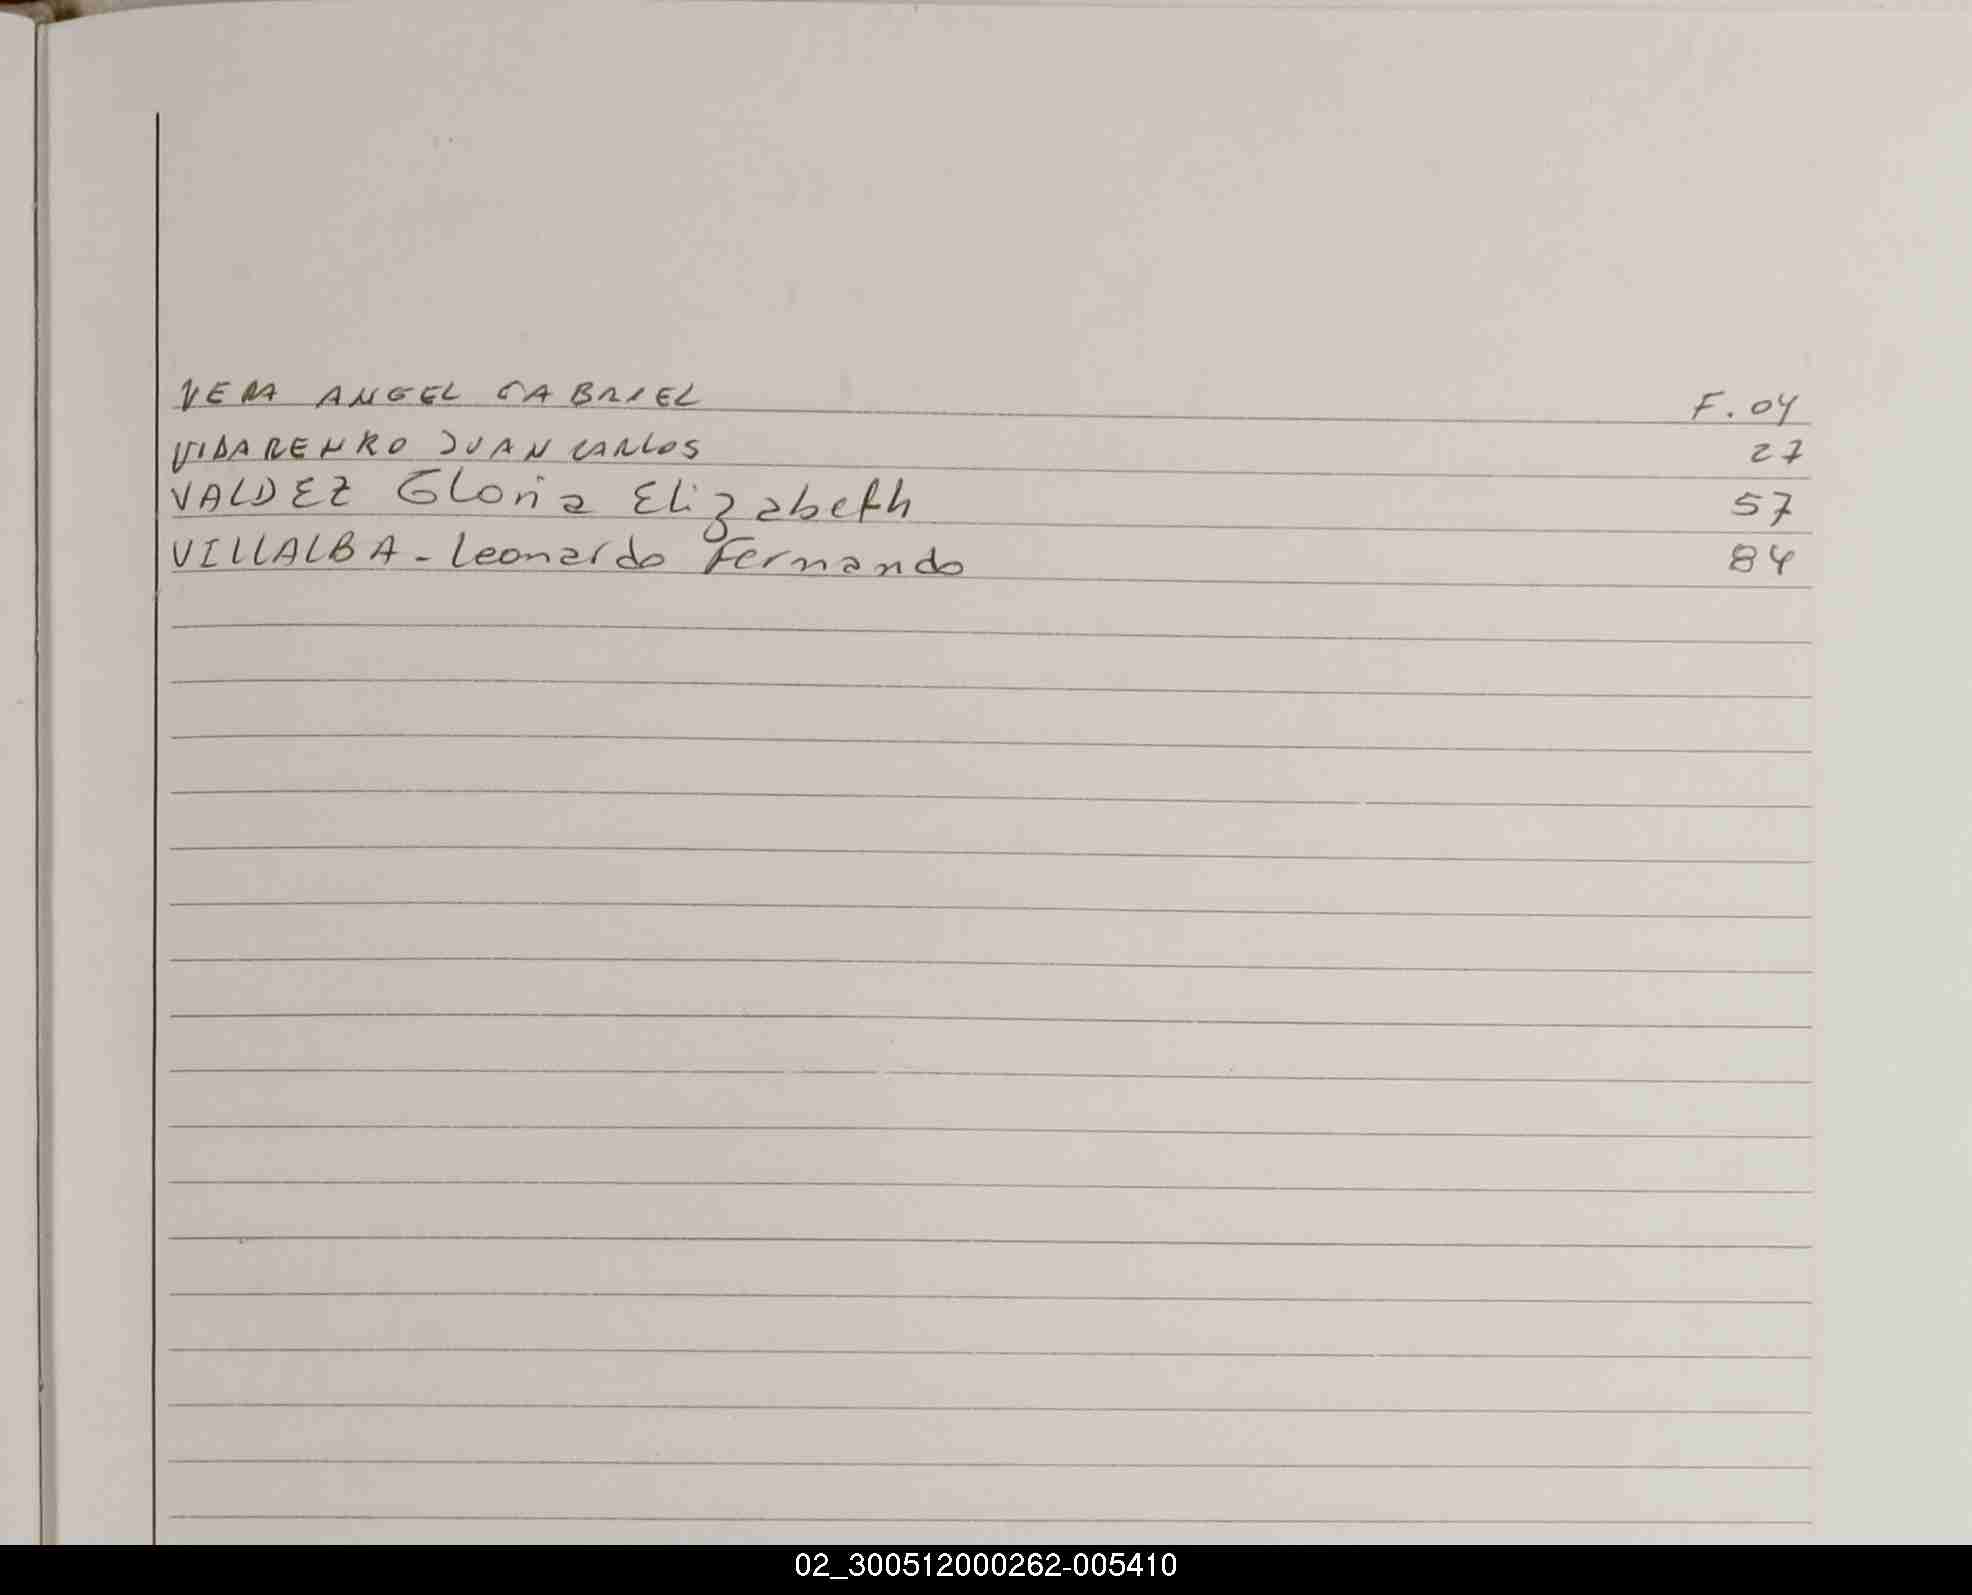 VERA ANGEL GABRIEL F. 04
VIDARENKO JUAN CARLOS 27
VALDEZ Gloria Elizabeth 57
VILLALBA - Leonardo Fernando 84
02_300512000262-005410